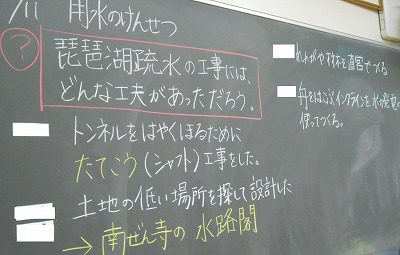 用水のけんせつ
?
琵琶湖疏水の工事には、
どんな工夫があっただろう。
トンネルをはやくほるために
たてこう(シャフト)工事をした。
土地の低い場所を探して設計した
→南ぜん寺の水路閣
れんがや木材を直営でつくる
舟をはこぶインクラインを水力発電の
使ってつくる。